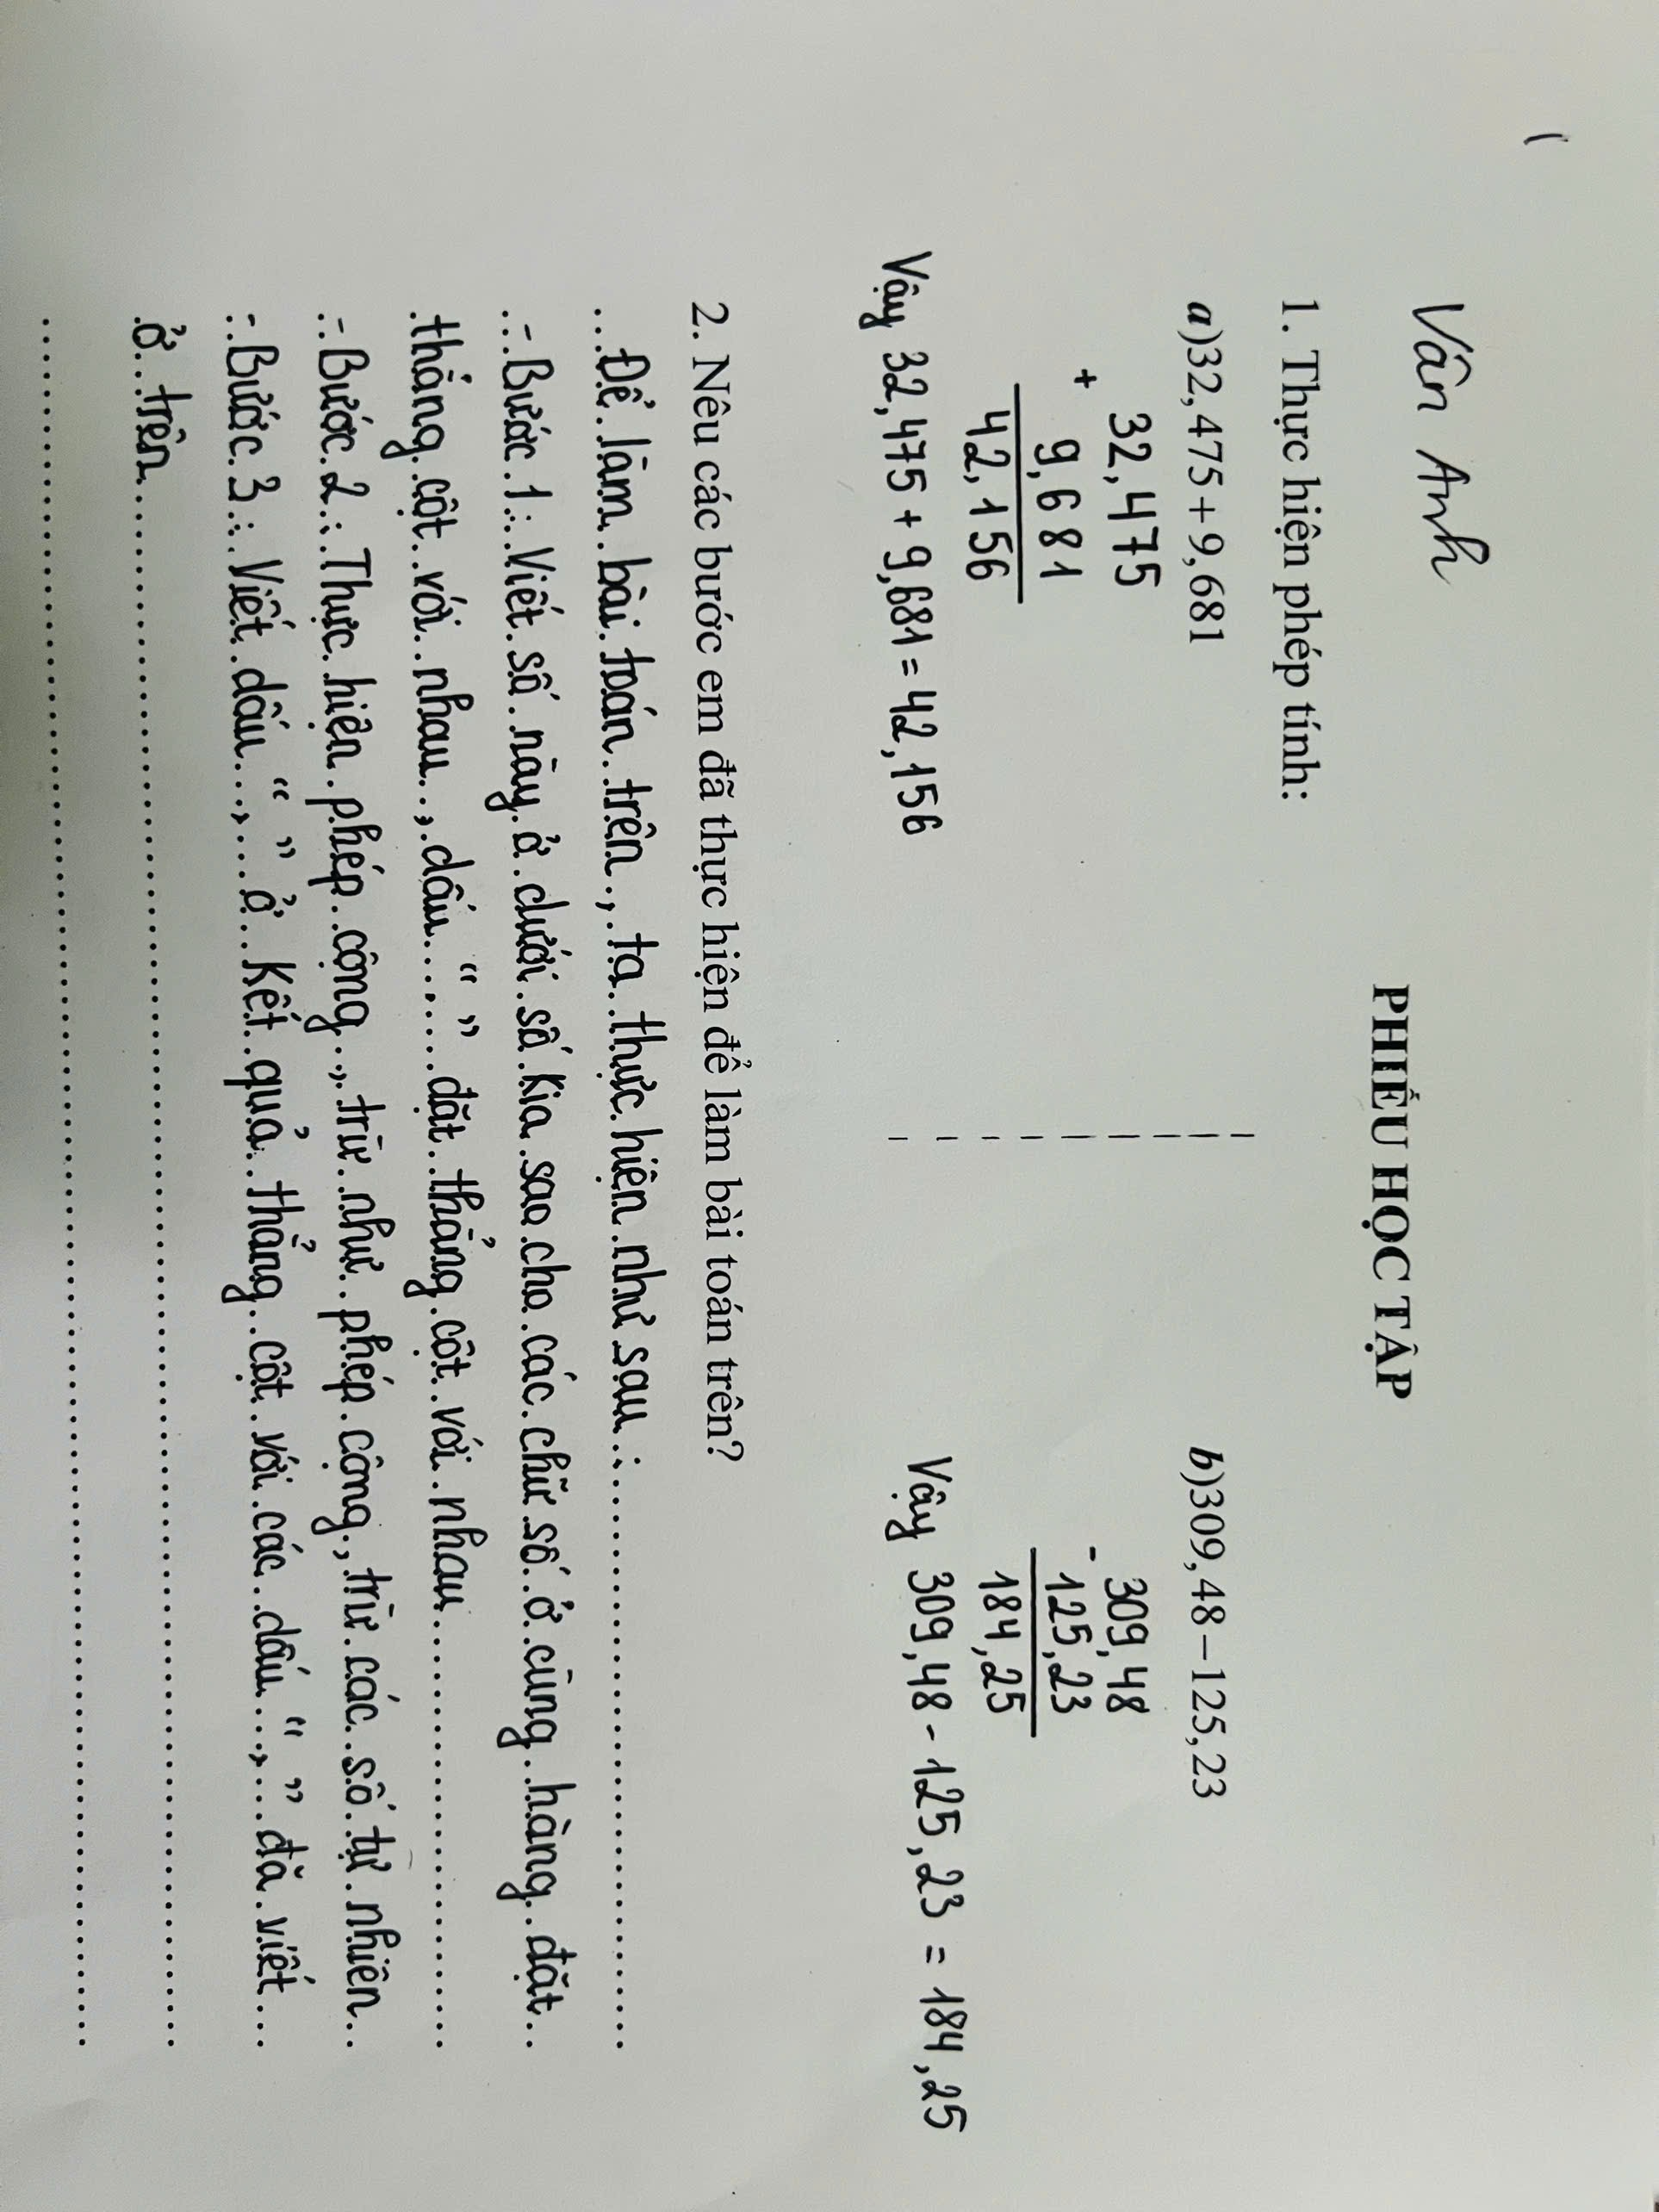 Vân Anh
PHIẾU HỌC TẬP
1. Thực hiện phép tính:
a)32,475+9,681
b)309,48−125,23
32,475
+
9,681
42,156
Vậy 32,475 + 9,681 = 42,156
309,48
-
125,23
184,25
Vậy 309,48 - 125,23 = 184,25
2. Nêu các bước em đã thực hiện để làm bài toán trên?
Để làm bài toán trên, ta thực hiện như sau:
- Bước 1: Viết số này ở dưới số kia sao cho các chữ số ở cùng hàng đặt
thẳng cột với nhau, dấu “,” đặt thẳng cột với nhau
- Bước 2: Thực hiện phép cộng, trừ như phép cộng, trừ các số tự nhiên
- Bước 3: Viết dấu “,” ở kết quả thẳng cột với các dấu “,” đã viết
ở trên